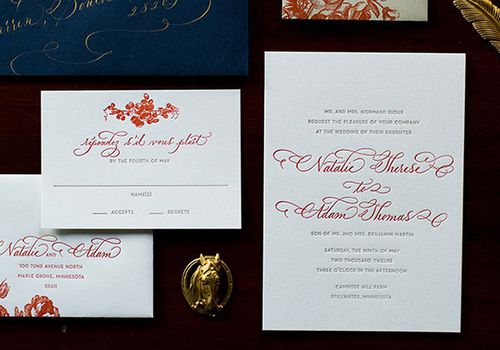 28205
répondez s'il vous plaît
BY THE FOURTH OF MAY
NAME(S)
ACCEPTS REGRETS
Natalie and Adam
100 72ND AVENUE NORTH
MAPLE GROVE, MINNESOTA
55311
MR. AND MRS. NORMAND SIOUX
REQUEST THE PLEASURE OF YOUR COMPANY
AT THE WEDDING OF THEIR DAUGHTER
Natalie Therese
to
Adam Thomas
SON OF MR. AND MRS. BENJAMIN MARTIN
SATURDAY, THE NINTH OF MAY
TWO THOUSAND TWELVE
THREE O'CLOCK IN THE AFTERNOON
CAMROSE HILL FARM
STILLWATER, MINNESOTA